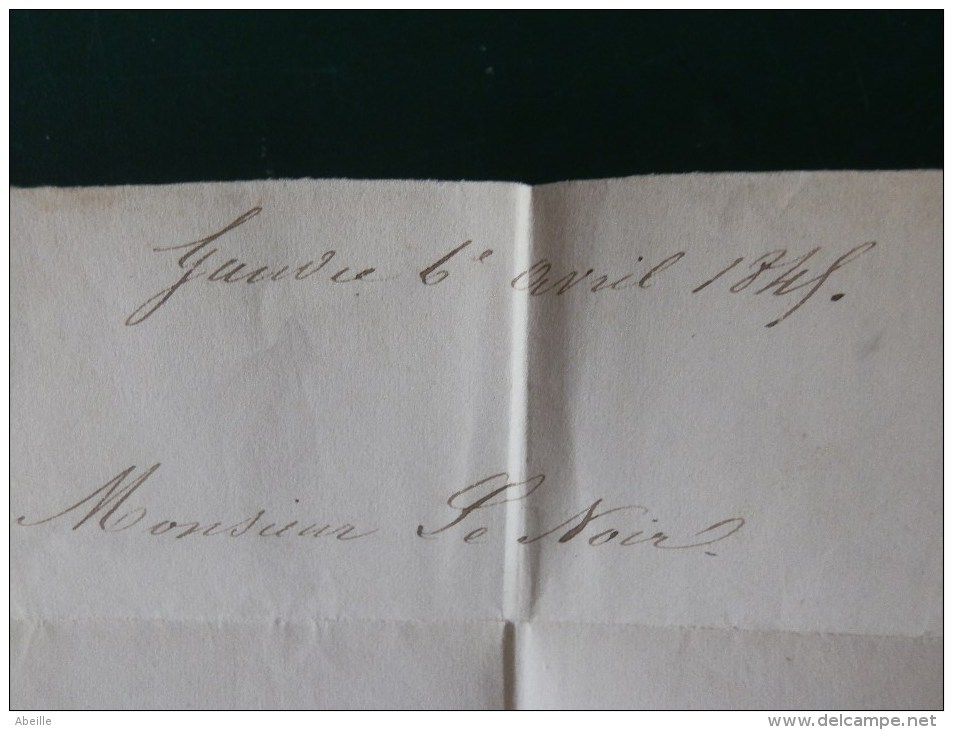 6e avril 1845.
Monsieur Le Noir.
Abeille
www.delcampe.net